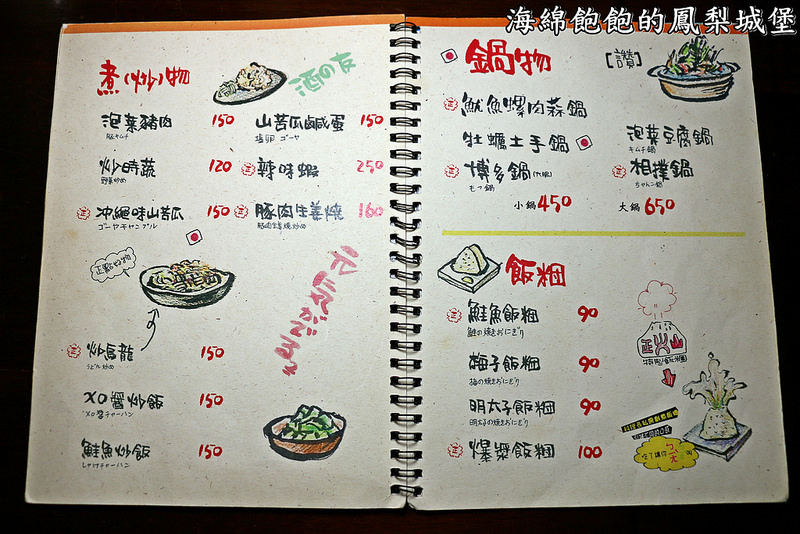 海綿飽飽的鳳梨城堡
煮(炒)物
酒の友
泡菜豬肉 150
豚キムチ
山苦瓜鹹蛋 150
塩卵 ゴーヤ
炒時蔬 120
野菜炒め
辣味蝦 250
沖繩味山苦瓜 150
ゴーヤチャンプル
豚肉生姜燒 160
豚肉生姜燒炒め
正點好物
炒烏龍 150
うどん炒め
XO醬炒飯 150
XO醬チャーハン
鮭魚炒飯 150
しゃけチャーハン
鍋物
[讚]
魷魚螺肉蒜鍋
牡蠣土手鍋
泡菜豆腐鍋
キムチ鍋
博多鍋
もつ鍋
相撲鍋
ちゃんこ鍋
小鍋 450
大鍋 650
飯糰
鮭魚飯糰 90
鮭の焼きおにぎり
梅子飯糰 90
梅の焼きおにぎり
明太子飯糰 90
明太子の焼きおにぎり
爆漿飯糰 100
正火山